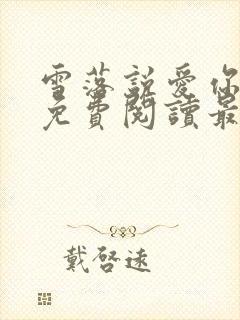 雪落說愛你
免費閱讀最
戴啓遠